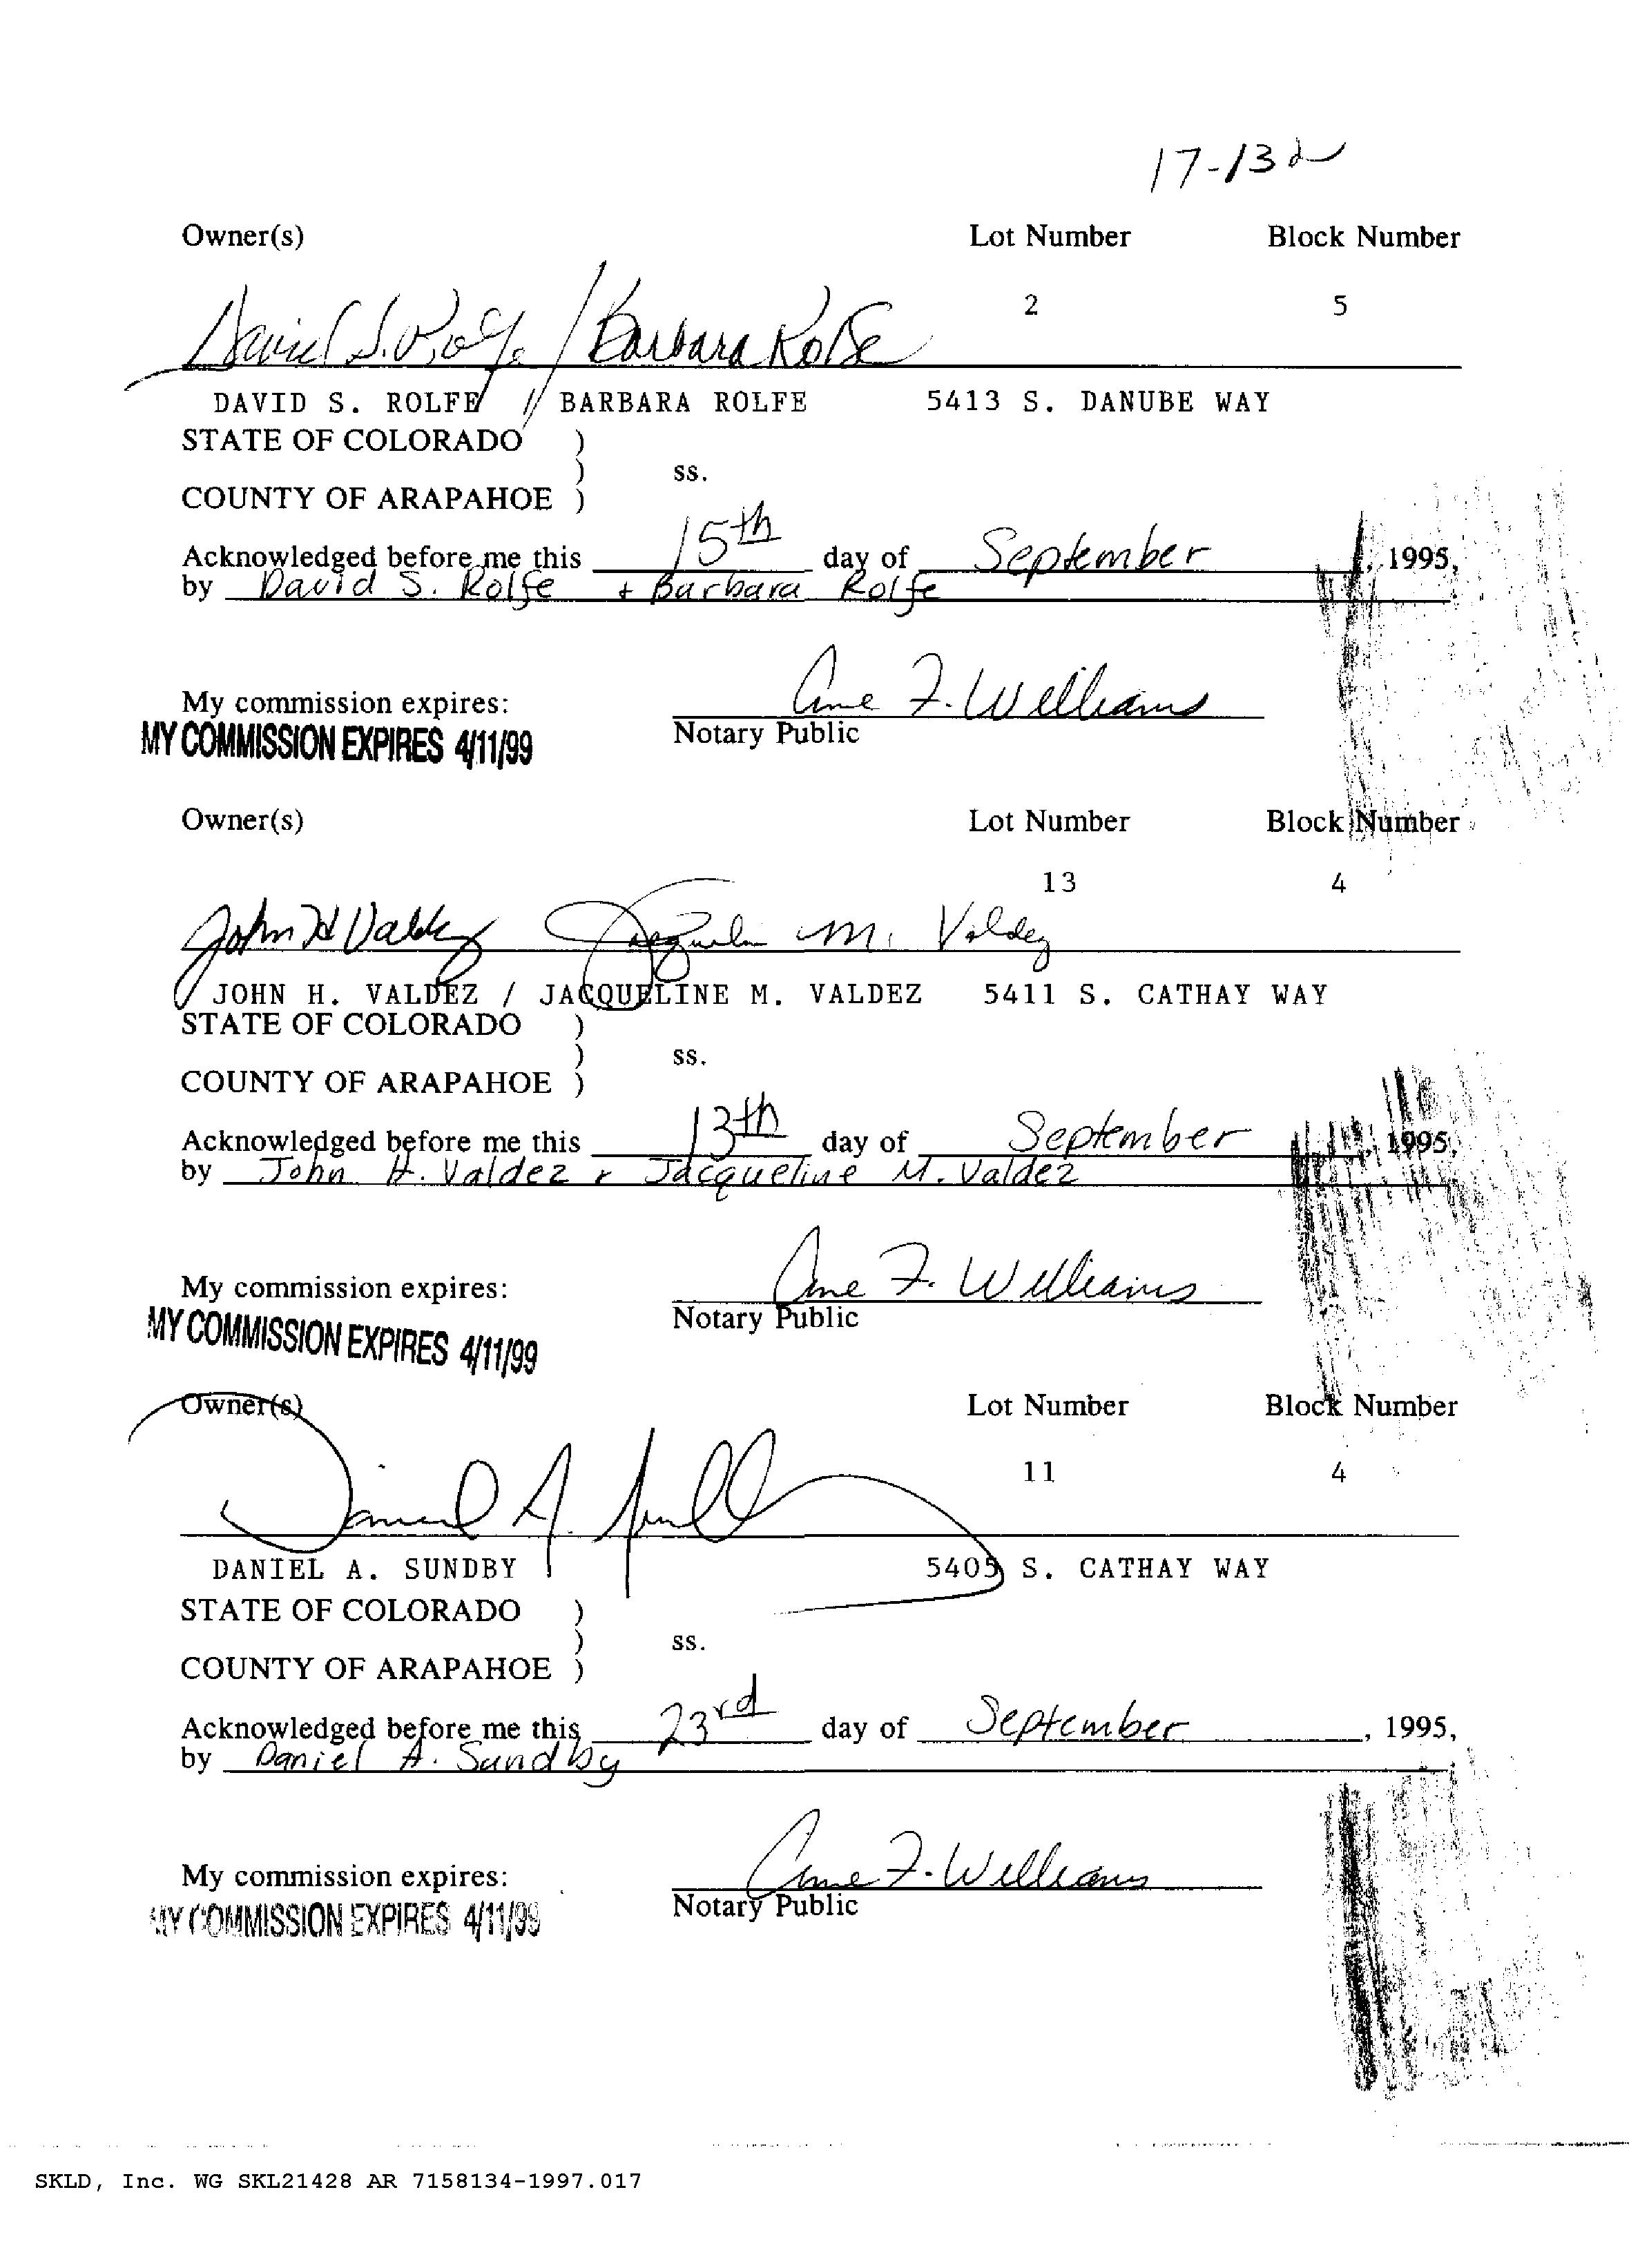 17-132
Owner(s) Lot Number Block Number
2 5
David S. Rolfe / Barbara Rolfe
DAVID S. ROLFE // BARBARA ROLFE 5413 S. DANUBE WAY
STATE OF COLORADO )
) ss.
COUNTY OF ARAPAHOE )
Acknowledged before me this 15th day of September, 1995,
by David S. Rolfe + Barbara Rolfe
Ane F. Williams
My commission expires: Notary Public
MY COMMISSION EXPIRES 4/11/99
Owner(s) Lot Number Block Number
13 4
John H Valdez Jacquelin M. Valdez
JOHN H. VALDEZ / JACQUELINE M. VALDEZ 5411 S. CATHAY WAY
STATE OF COLORADO )
) ss.
COUNTY OF ARAPAHOE )
Acknowledged before me this 13th day of September, 1995,
by John H. Valdez + Jacqueline M. Valdez
Ane F. Williams
My commission expires: Notary Public
MY COMMISSION EXPIRES 4/11/99
Owner(s) Lot Number Block Number
11 4
Daniel A.
DANIEL A. SUNDBY 5405 S. CATHAY WAY
STATE OF COLORADO )
) ss.
COUNTY OF ARAPAHOE )
Acknowledged before me this 23rd day of September, 1995,
by Daniel A. Sundby
Ane F. Williams
My commission expires: Notary Public
MY COMMISSION EXPIRES 4/11/99
SKLD, Inc. WG SKL21428 AR 7158134-1997.017